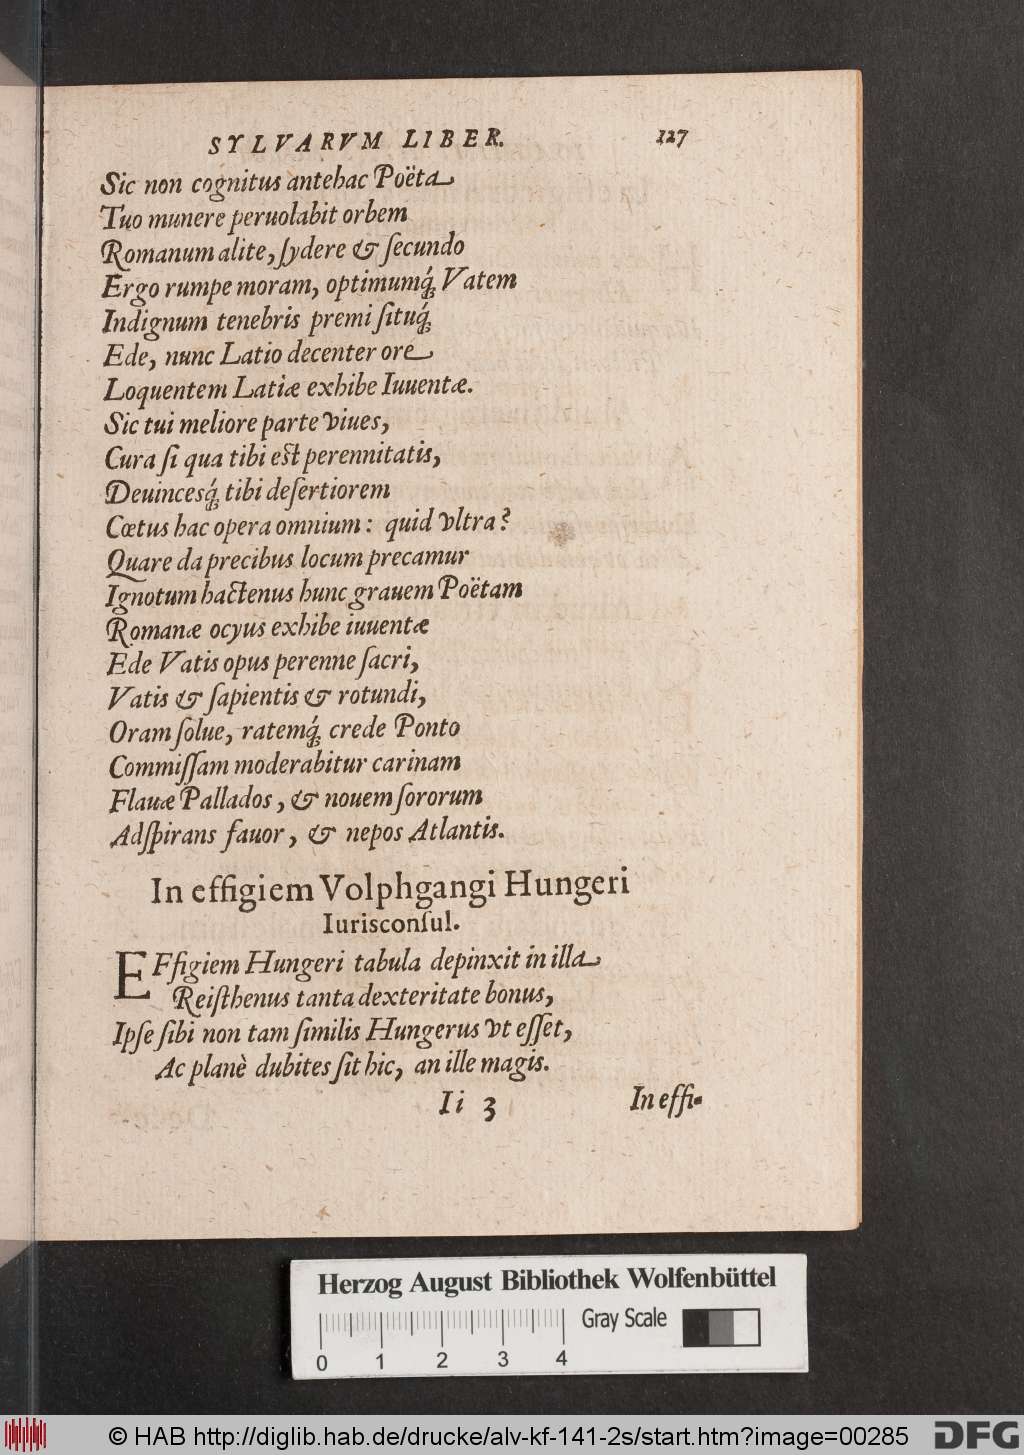 SYLVARVM LIBER. 127
Sic non cognitus antehac Poëta
Tuo munere peruolabit orbem
Romanum alite, ſydere & ſecundo
Ergo rumpe moram, optimumq́; Vatem
Indignum tenebris premi ſituq́;
Ede, nunc Latio decenter ore
Loquentem Latiæ exhibe Iuuentæ.
Sic tui meliore parte viues,
Cura ſi qua tibi eſt perennitatis,
Deuincesq́; tibi deſertiorem
Cœtus hac opera omnium: quid vltra?
Quare da precibus locum precamur
Ignotum hactenus hunc grauem Poëtam
Romanæ ocyus exhibe iuuentæ
Ede Vatis opus perenne ſacri,
Vatis & ſapientis & rotundi,
Oram ſolue, ratemq́; crede Ponto
Commiſſam moderabitur carinam
Flauæ Pallados, & nouem ſororum
Adſpirans fauor, & nepos Atlantis.
In effigiem Volphgangi Hungeri
Iurisconſul.
EFfigiem Hungeri tabula depinxit in illa
Reiſthenus tanta dexteritate bonus,
Ipſe ſibi non tam ſimilis Hungerus vt eſſet,
Ac planè dubites ſit hic, an ille magis.
Ii 3 In effi-
Herzog August Bibliothek Wolfenbüttel
Gray Scale
0 1 2 3 4
© HAB http://diglib.hab.de/drucke/alv-kf-141-2s/start.htm?image=00285 DFG